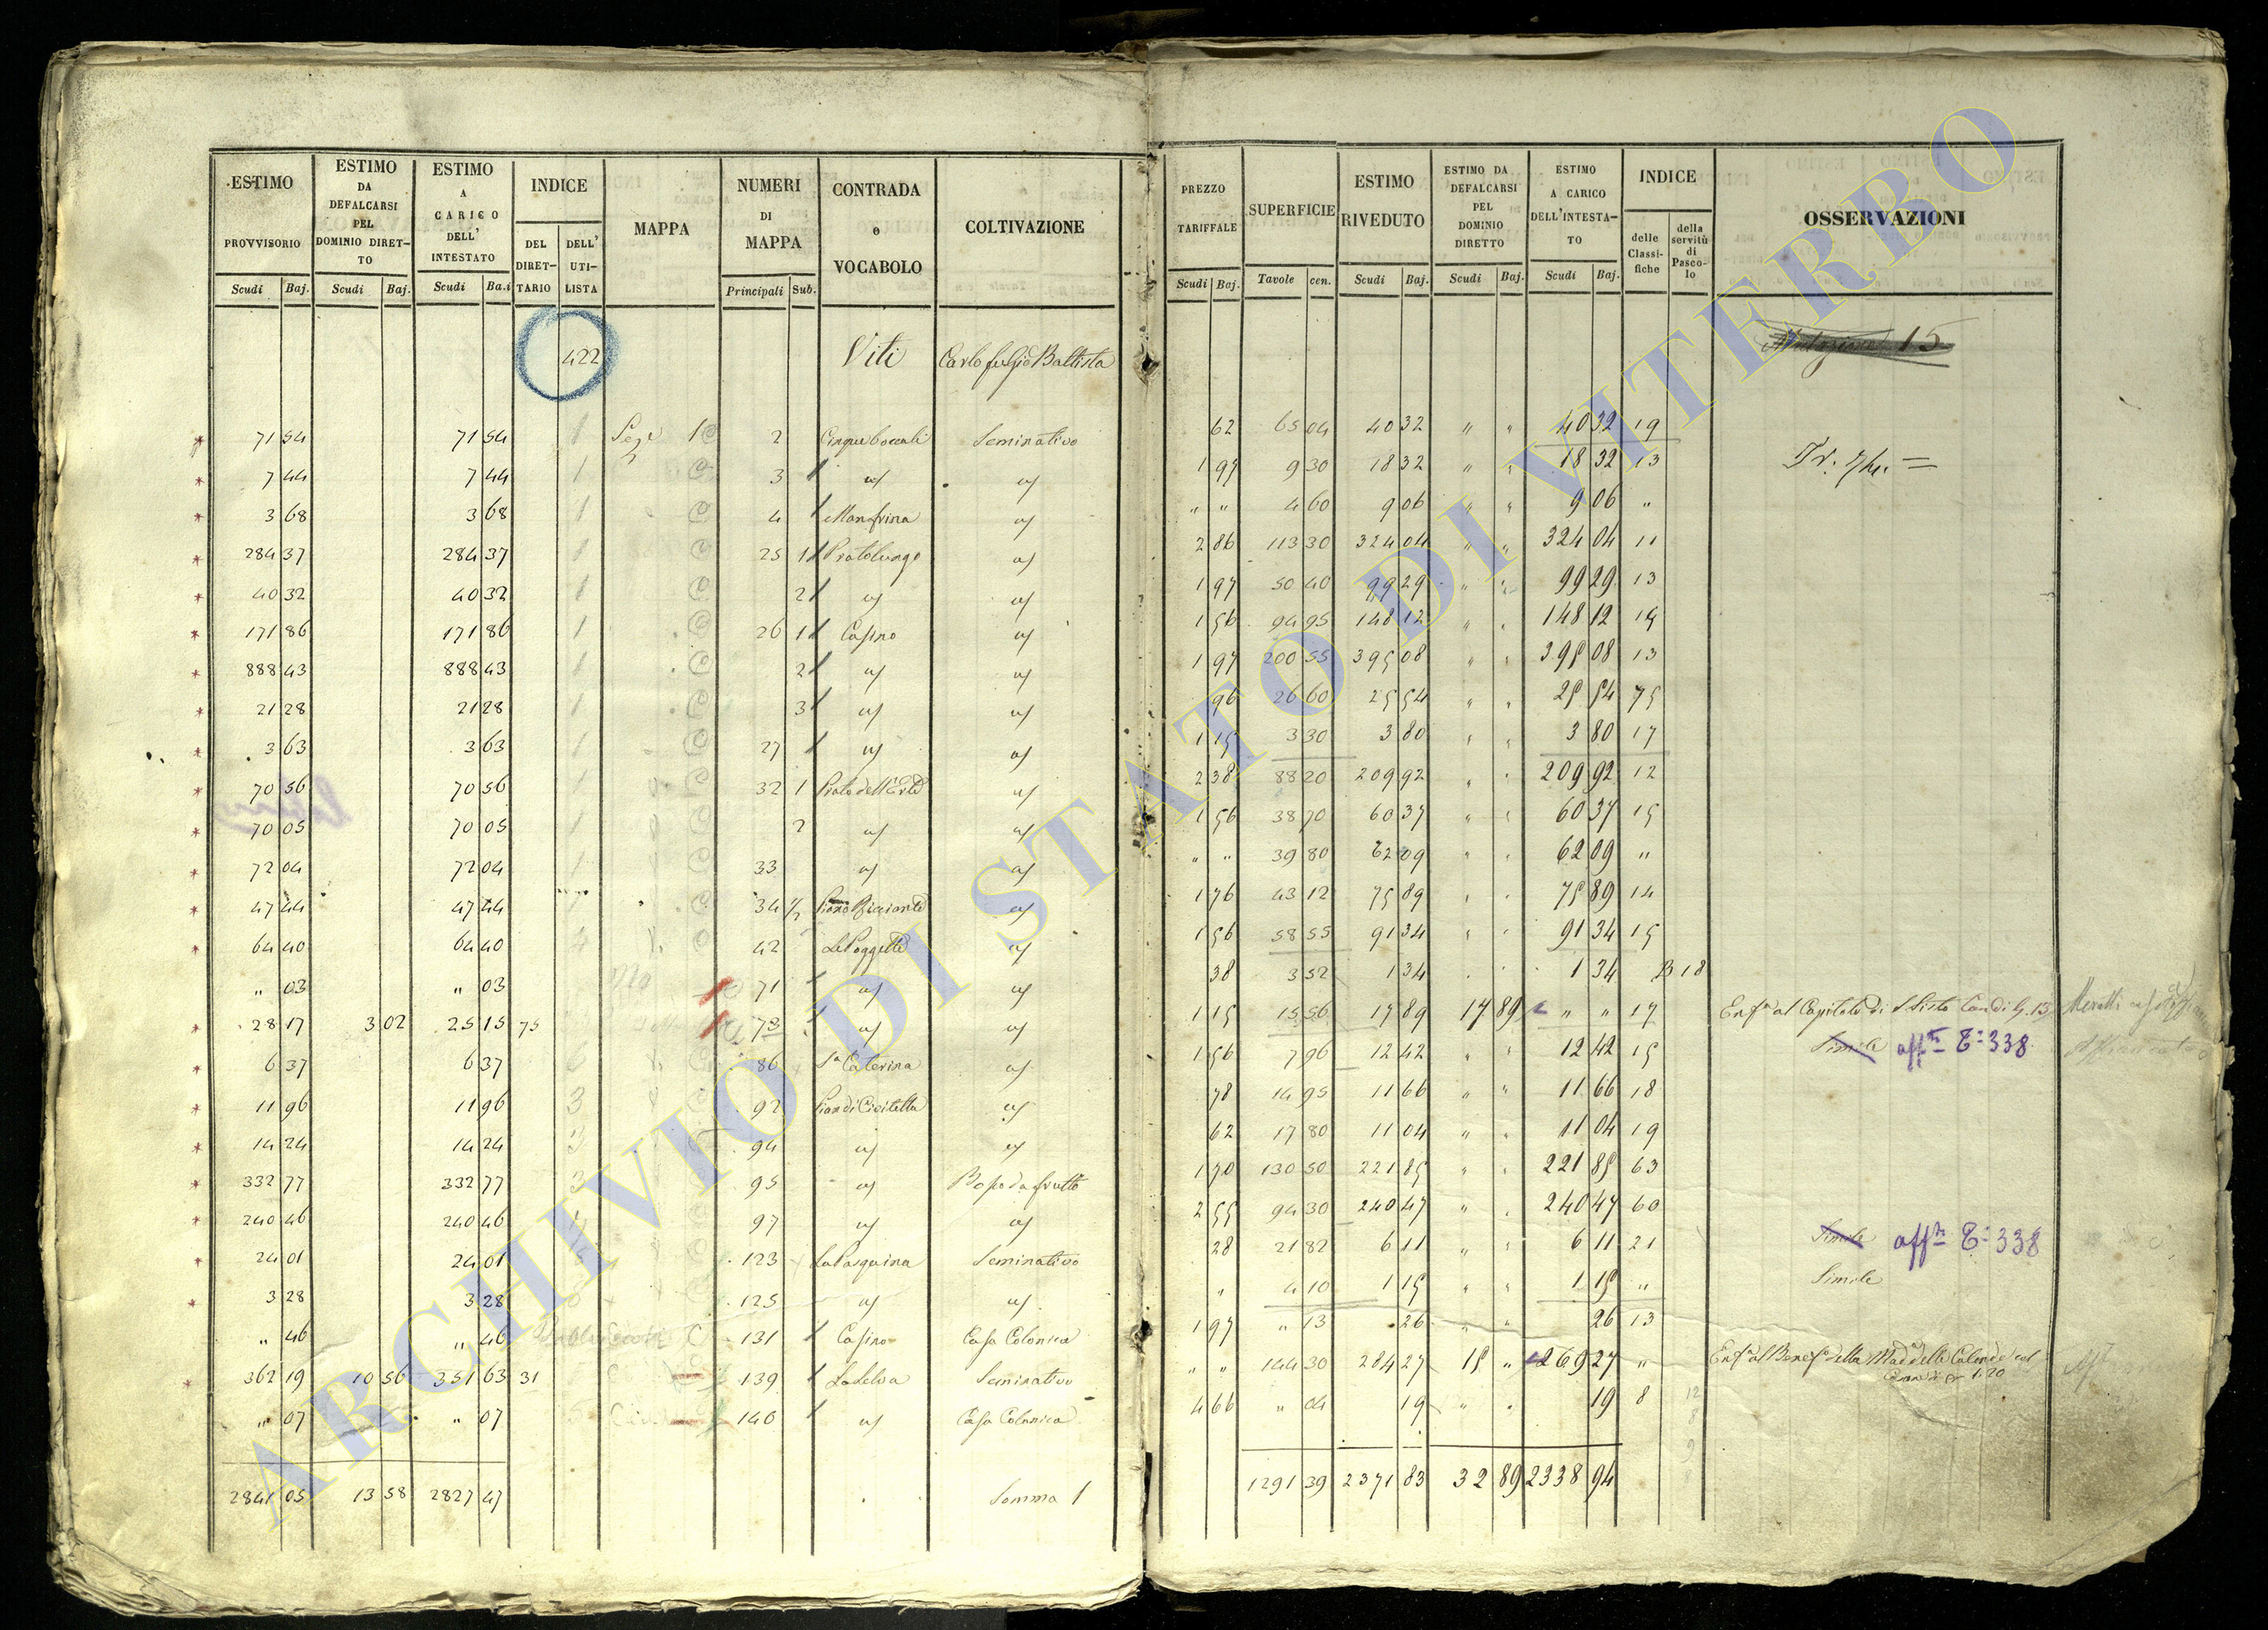 ESTIMO PROVVISORIO | ESTIMO DA DEFALCARSI PEL DOMINIO DIRETTO | ESTIMO A CARICO DELL' INTESTATO | INDICE | MAPPA | NUMERI DI MAPPA | CONTRADA o VOCABOLO | COLTIVAZIONE | PREZZO TARIFFALE | SUPERFICIE | ESTIMO RIVEDUTO | ESTIMO DA DEFALCARSI PEL DOMINIO DIRETTO | ESTIMO A CARICO DELL'INTESTATO | INDICE | OSSERVAZIONI
DEL DIRETTARIO | DELL' UTILISTA | delle Classifiche | della servitù di Pascolo
Scudi | Baj. | Scudi | Baj. | Scudi | Ba.i | Principali | Sub. | Scudi | Baj. | Tavole | cen. | Scudi | Baj. | Scudi | Baj. | Scudi | Baj.
422 Viti Carlo fu Gio Battista 15
71 54 71 54 1 2 Cinque boccali Seminativo 62 65 04 40 32 " " 40 32 19
7 44 7 44 1 3 1 97 9 30 18 32 " " 18 32 13
3 68 3 68 1 4 Manfrina " " 4 60 9 06 " " 9 06 "
284 37 284 37 1 25 1 Pratolungo 2 86 113 30 324 04 " " 324 04 11
40 32 40 32 1 2 1 97 50 40 99 29 " " 99 29 13
171 86 171 86 1 26 1 Casino 1 56 94 95 148 12 " " 148 12 15
888 43 888 43 1 2 1 97 200 55 395 08 " " 395 08 13
21 28 21 28 1 3 96 26 60 25 54 " " 25 54 75
3 63 3 63 1 27 1 15 3 30 3 80 " " 3 80 17
70 56 70 56 1 32 1 2 38 88 20 209 92 " " 209 92 12
70 05 70 05 1 2 1 56 38 70 60 37 " " 60 37 15
72 04 72 04 1 33 " " 39 80 62 09 " " 62 09 "
47 44 47 44 34 1 76 43 12 75 89 " " 75 89 14
64 40 64 40 42 Le Poggette 1 56 58 55 91 34 " " 91 34 15
" 03 " 03 71 38 3 52 1 34 1 34 B 18
28 17 3 02 25 15 75 73 1 15 15 56 17 89 17 89 " " 17 Enfa al Capitolo di S. Sisto
6 37 6 37 86 Sa Caterina 1 56 7 96 12 42 " " 12 42 15 Simile affta T. 338
11 96 11 96 3 92 Pian di Civitella 78 14 95 11 66 " " 11 66 18
14 24 14 24 3 94 62 17 80 11 04 " " 11 04 19
332 77 332 77 3 95 Bosco da frutto 1 70 130 50 221 85 " " 221 85 63
240 46 240 46 97 2 55 94 30 240 47 " " 240 47 60
24 01 24 01 123 La Pasquina Seminativo 28 21 82 6 11 " " 6 11 21 Simile affta T. 338
3 28 3 28 125 " 4 10 1 15 " " 1 15 " Simile
" 46 " 46 131 Casino Casa Colonica 1 97 " 13 26 " " 26 13
362 19 10 56 351 63 31 139 La Selva Seminativo " " 144 30 284 27 15 " 269 27 " Enfa al Benefo della Mada delle
" 07 " 07 140 Casa Colonica 4 66 " 04 19 " " 19 8
2841 05 13 58 2827 47 Somma 1 1291 39 2371 83 32 89 2338 94
ARCHIVIO DI STATO DI VITERBO